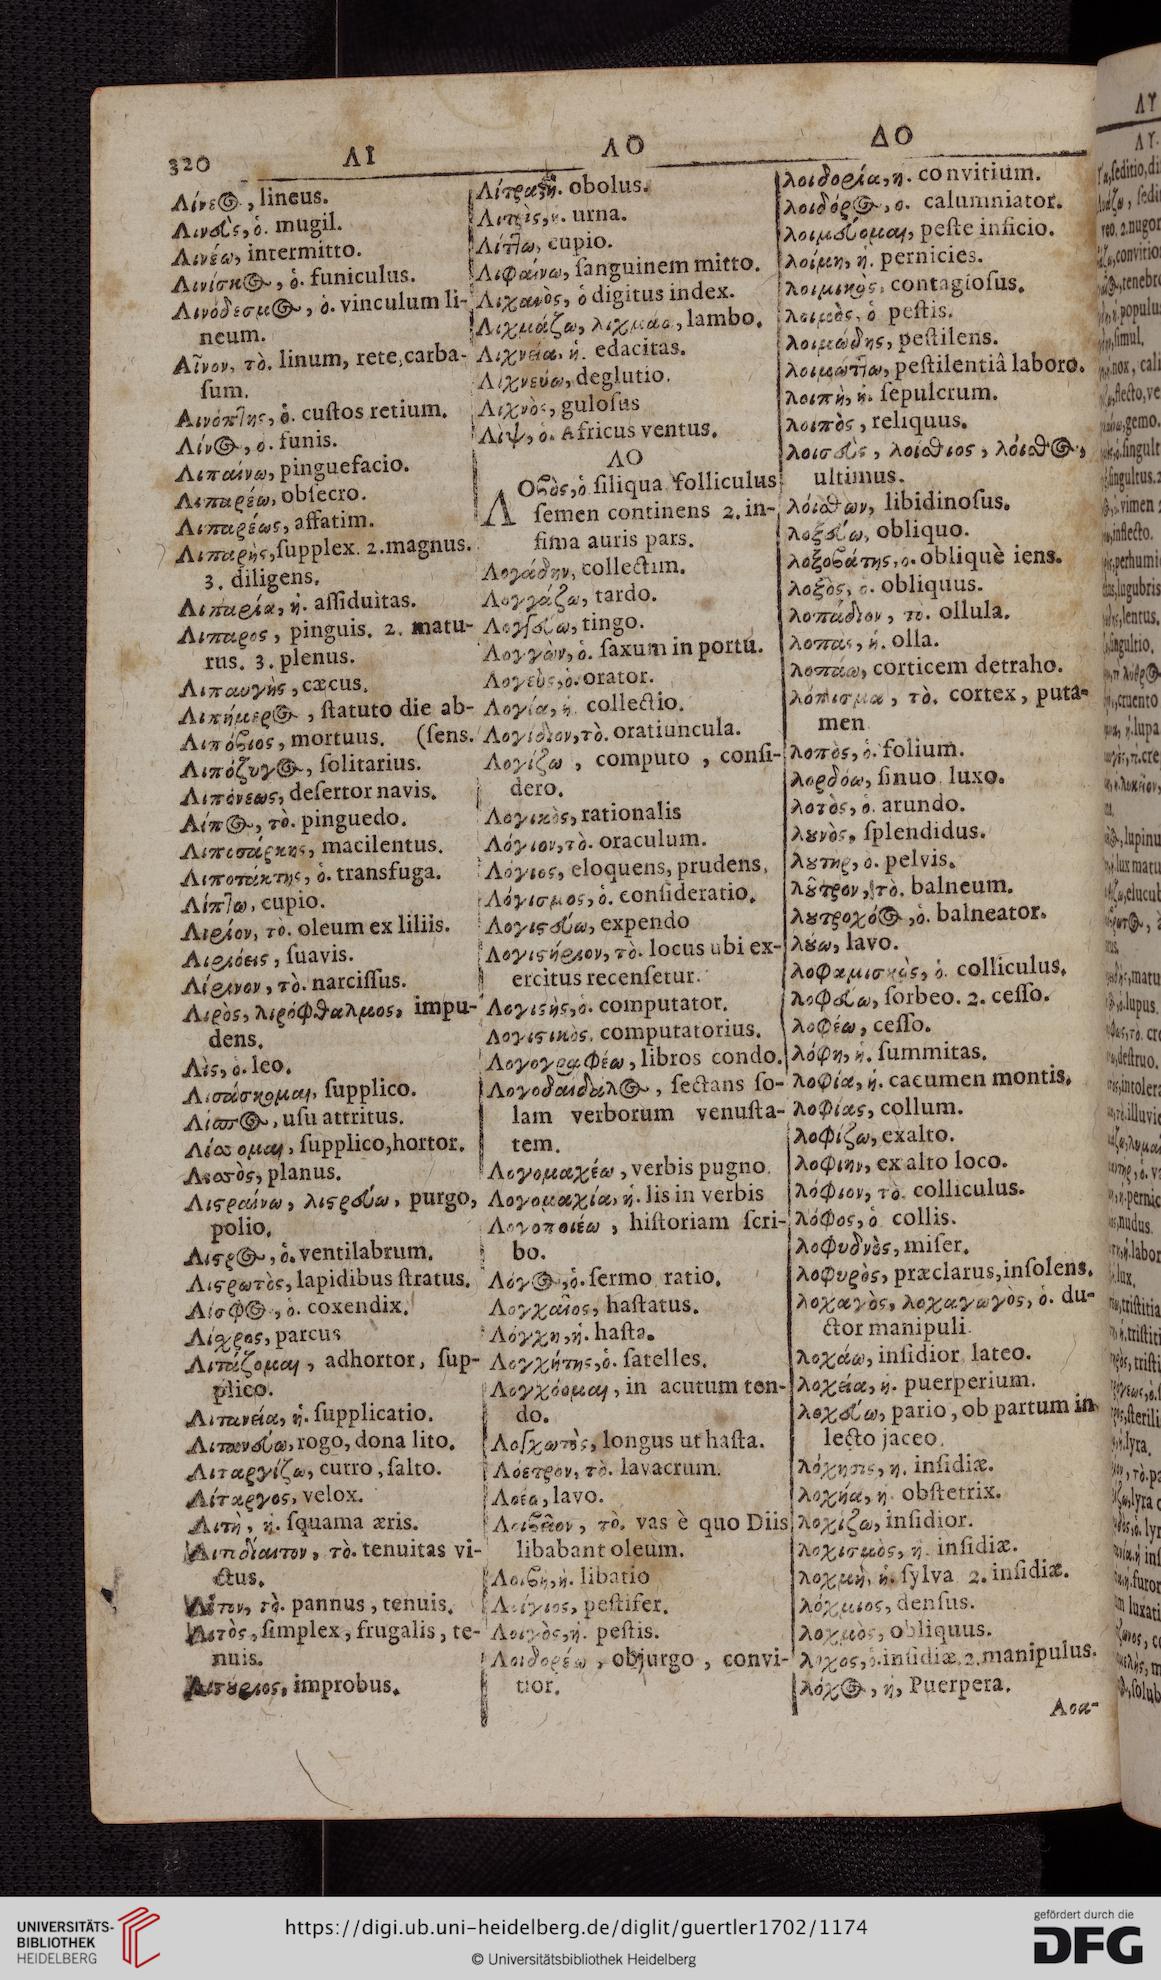 320 ΛΙ ΛΟ ΔΟ
Λίνεος, lineus.
Λινεὺς, ὁ. mugil.
Λινέω, intermitto.
Λινίσκος, ὁ. funiculus.
Λινόδεσμος, ὁ. vinculum li-
neum.
Λῖνον, τὸ. linum, rete, carba-
sum.
Λινόπτης, ὁ. custos retium.
Λίνος, ὁ. funis.
Λιπαίνω, pinguefacio.
Λιπαρέω, obsecro.
Λιπαρέως, affatim.
Λιπαρὴς, supplex. 2. magnus.
3. diligens.
Λιπαρία, ἡ. assiduitas.
Λιπαρος, pinguis. 2. matu-
rus. 3. plenus.
Λιπαυγὴς, cæcus.
Λιπήμερος, statuto die ab-
Λιπόβιος, mortuus. (sens.
Λιπόζυγος, solitarius.
Λιπόνεως, desertor navis.
Λίπος, τὸ. pinguedo.
Λιποσάρκης, macilentus.
Λιποτάκτης, ὁ. transfuga.
Λίπτω, cupio.
Λιρίον, τὸ. oleum ex liliis.
Λιριόεις, suavis.
Λίρινον, τὸ. narcissus.
Λιρὸς, λιρόφθαλμος, impu-
dens.
Λὶς, ὁ. leo.
Λισάσκομαι, supplico.
Λίσπος, usu attritus.
Λίσσομαι, supplico, hortor.
Λισσὸς, planus.
Λιστραίνω, λιστρεύω, purgo,
polio.
Λιστρος, ὁ. ventilabrum.
Λιστρωτὸς, lapidibus stratus.
Λίσφος, ὁ. coxendix.
Λίσχρος, parcus
Λιτάζομαι, adhortor, sup-
plico.
Λιτανεία, ἡ. supplicatio.
Λιτανεύω, rogo, dona lito.
Λιταργίζω, curro, salto.
Λίταργος, velox.
Λιτὴ, ἡ. squama æris.
Λιτοδίαιτον, τὸ. tenuitas vi-
ctus.
Λῖτον, τὸ. pannus, tenuis.
Λιτὸς, simplex, frugalis, te-
nuis.
Λιτύριος, improbus.
Λίτρα, ἡ. obolus.
Λιτρὶς, ἡ. urna.
Λίττω, cupio.
Λιφαίνω, sanguinem mitto.
Λιχανὸς, ὁ digitus index.
Λιχμάζω, λιχμάω, lambo.
Λιχνεία, ἡ. edacitas.
Λιχνεύω, deglutio.
Λιχνὸς, gulosus
Λὶψ, ὁ. Africus ventus.
ΛΟ
ΛΟβὸς, ὁ siliqua folliculus
semen continens 2. in-
fima auris pars.
Λογάδην, collectim.
Λογγάζω, tardo.
Λογγεύω, tingo.
Λογγὼν, ὁ. saxum in portu.
Λογεὺς, ὁ. orator.
Λογία, ἡ. collectio.
Λογίδιον, τὸ. oratiuncula.
Λογίζω, computo, consi-
dero.
Λογικὸς, rationalis
Λόγιον, τὸ. oraculum.
Λόγιος, eloquens, prudens.
Λόγισμος, ὁ. consideratio.
Λογιστεύω, expendo
Λογιστήριον, τὸ. locus ubi ex-
ercitus recensetur.
Λογιστὴς, ὁ. computator.
Λογιστικὸς, computatorius.
Λογογραφέω, libros condo.
Λογοδαίδαλος, sectans so-
lam verborum venusta-
tem.
Λογομαχέω, verbis pugno.
Λογομαχία, ἡ. lis in verbis
Λογοποιέω, historiam scri-
bo.
Λόγος, ὁ. sermo ratio.
Λογχαῖος, hastatus.
Λόγχη, ἡ. hasta.
Λογχήτης, ὁ. satelles.
Λογχόομαι, in acutum ten-
do.
Λογχωτὸς, longus ut hasta.
Λόετρον, τὸ. lavacrum.
Λοέω, lavo.
Λοιβεῖον, τὸ. vas è quo Diis
libabant oleum.
Λοιβὴ, ἡ. libatio
Λοίγιος, pestifer.
Λοιγὸς, ἡ. pestis.
Λοιδορέω, objurgo, convi-
tior.
λοιδορία, ἡ. convitium.
λοιδόρος, ὁ. calumniator.
λοιμεύομαι, peste inficio.
λοίμη, ἡ. pernicies.
λοιμικὸς, contagiosus.
λοιμὸς, ὁ pestis.
λοιμώδης, pestilens.
λοιμώττω, pestilentiâ laboro.
λοιπὴ, ἡ. sepulcrum.
λοιπὸς, reliquus.
λοισεὺς, λοίσθιος, λόισθος,
ultimus.
λόισθων, libidinosus.
λοξεύω, obliquo.
λοξοβάτης, ὁ. obliquè iens.
λοξὸς, ὁ. obliquus.
λοπάδιον, το. ollula.
λοπὰς, ἡ. olla.
λοπάω, corticem detraho.
λόπισμα, τὸ. cortex, puta-
men
λοπὸς, ὁ. folium.
λορδόω, sinuo luxo.
λοτὸς, ὁ. arundo.
λουνὸς, splendidus.
λουτηρ, ὁ. pelvis.
λοῦτρον, τὸ. balneum.
λουτροχόος, ὁ. balneator.
λούω, lavo.
λοφαμισκὸς, ὁ. colliculus.
λοφεύω, sorbeo. 2. cesso.
λοφέω, cesso.
λόφη, ἡ. summitas.
λοφία, ἡ. cacumen montis.
λοφίας, collum.
λοφίζω, exalto.
λοφιην, ex alto loco.
λόφιον, τὸ. colliculus.
λόφος, ὁ collis.
λοφυδνὸς, miser.
λοφυρὸς, præclarus, insolens.
λοχαγὸς, λοχαγωγὸς, ὁ. du-
ctor manipuli.
λοχάω, insidior lateo.
λοχεία, ἡ. puerperium.
λοχεύω, pario, ob partum in
lecto jaceo.
λόχησις, ἡ. insidiæ.
λοχήα, ἡ. obstetrix.
λοχίζω, insidior.
λοχισμὸς, ἡ. insidiæ.
λοχμὴ, ἡ. sylva 2. insidiæ.
λόχμιος, densus.
λοχμὸς, obliquus.
λόχος, ὁ. insidiæ, 2. manipulus.
λόχος, ἡ, Puerpera.
Λοα-
UNIVERSITÄTS-
BIBLIOTHEK
HEIDELBERG
https://digi.ub.uni-heidelberg.de/diglit/guertler1702/1174
© Universitätsbibliothek Heidelberg
gefördert durch die
DFG